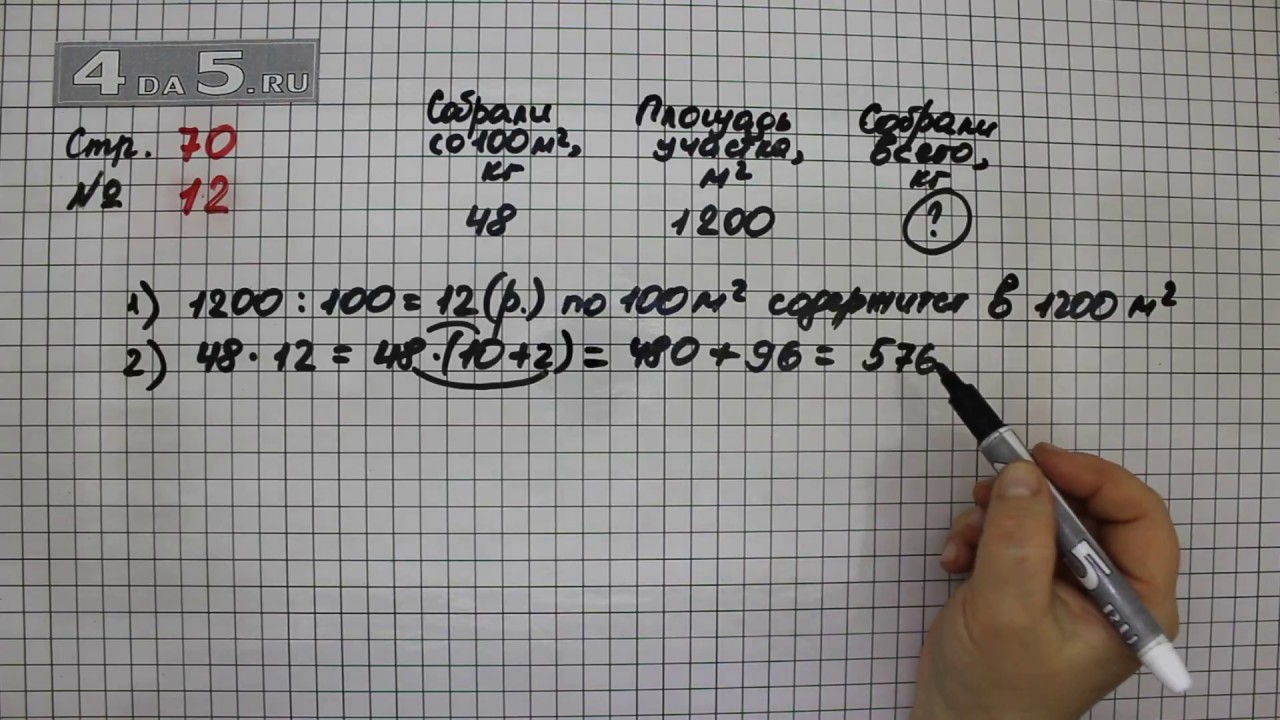 4 DA 5.RU
Стр. 70
№ 12
Собрали
со 100 м²,
кг
48
Площадь
участка,
м²
1200
Собрали
всего,
кг
?
1) 1200 : 100 = 12 (р.) по 100 м² содержится в 1200 м²
2) 48 · 12 = 48 · (10 + 2) = 480 + 96 = 576
5 RU